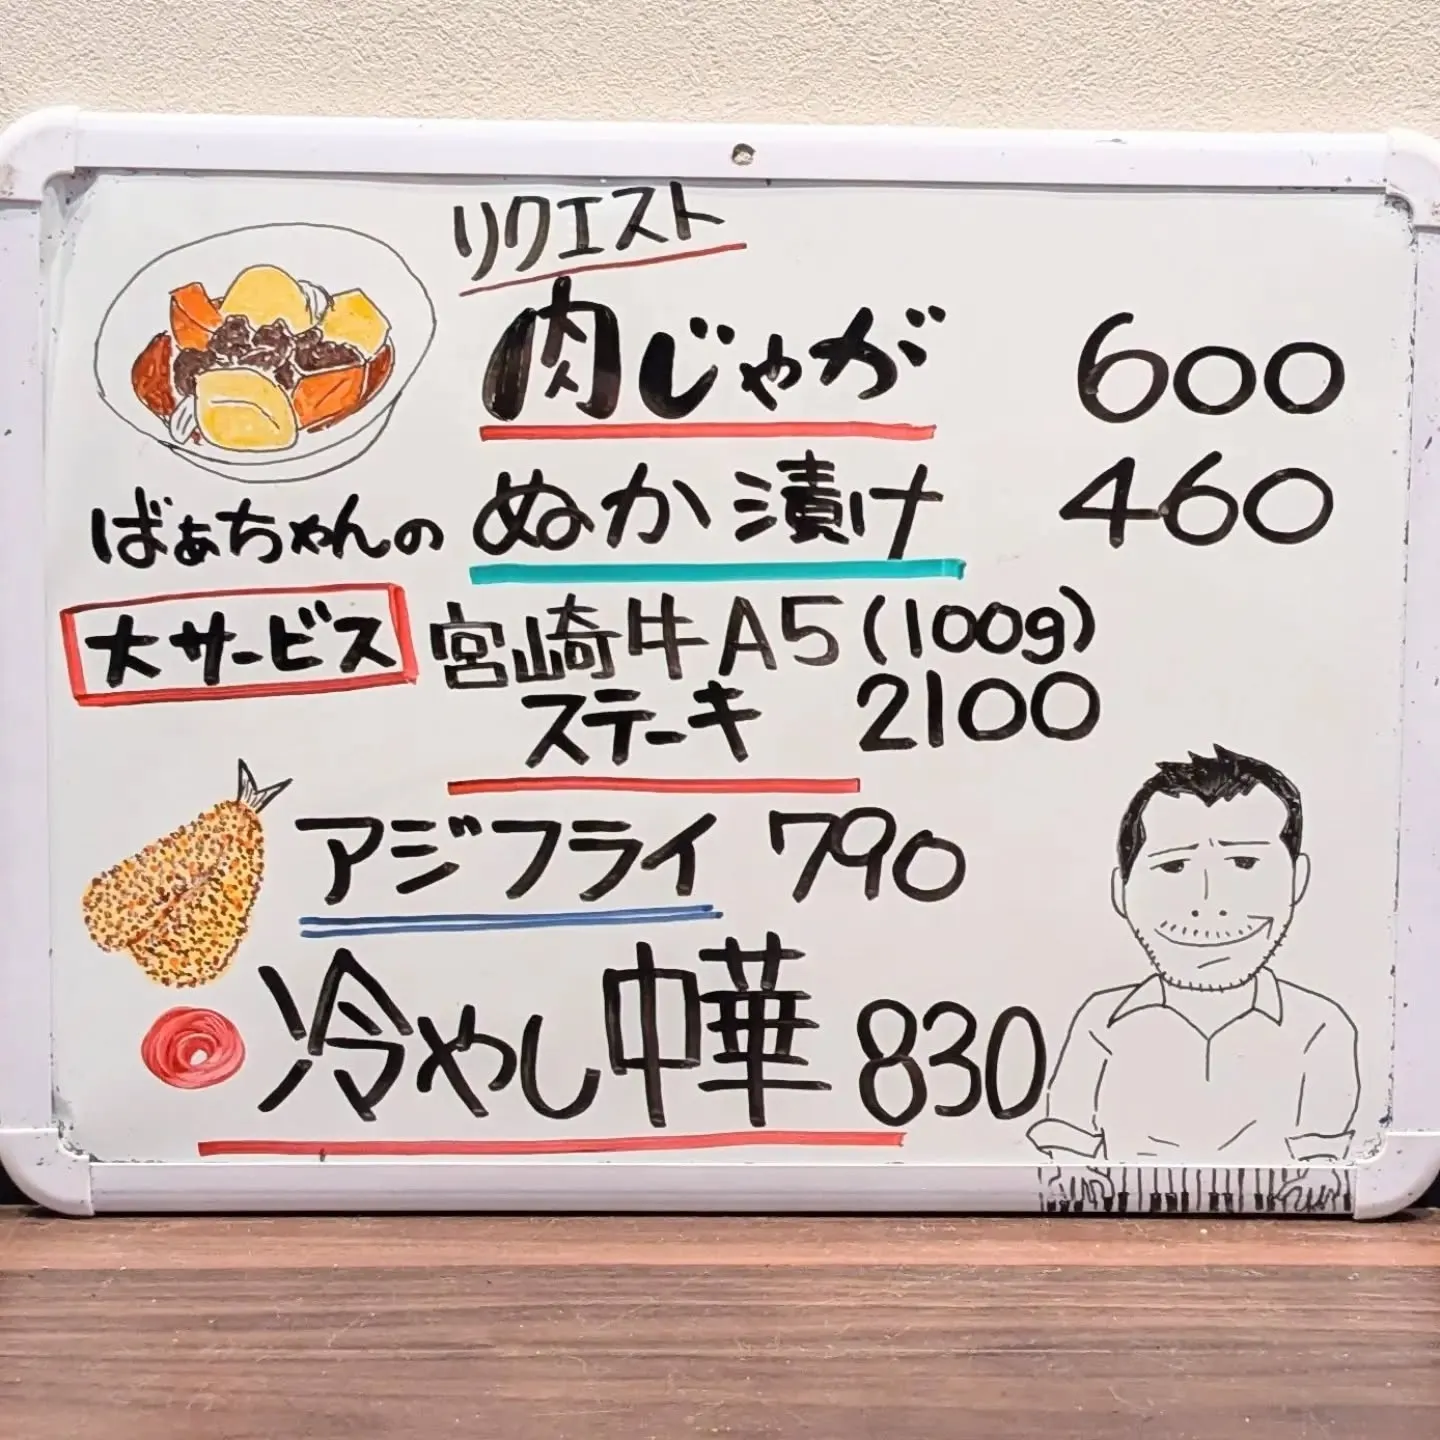 リクエスト
肉じゃが 600
ばぁちゃんの ぬか漬け 460
大サービス 宮崎牛A5(100g)
ステーキ 2100
アジフライ 790
冷やし中華 830